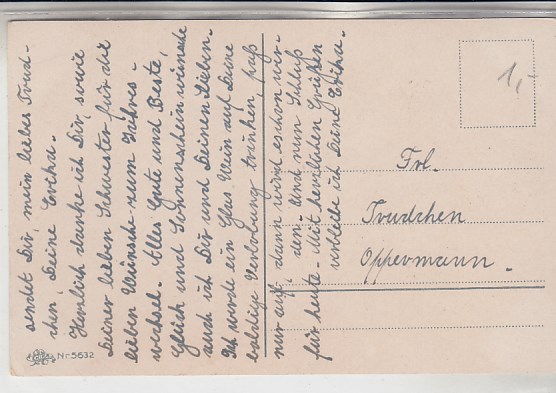 sendet Dir, mein liebes Trud-
chen, Deine Eocha.
Herzlich danke ich Dir, sowie
Deiner lieben Schwester für die
lieben Wünsche zum Jahres-
wechsel. Alles Gute und Beste,
Glück und Sonnenschein wünsche
auch ich Dir und Deinen Lieben.
Ich werde ein Glas Wein auf Deine
baldige Verlobung trinken, paß
nur auf, dann wird es schon wer-
den. Und nun Schluß
für heute. Mit herzlichen Grüßen
verbleibe ich Deine
1,-
Frl.
Trudchen
Oppermann.
Nr 5632